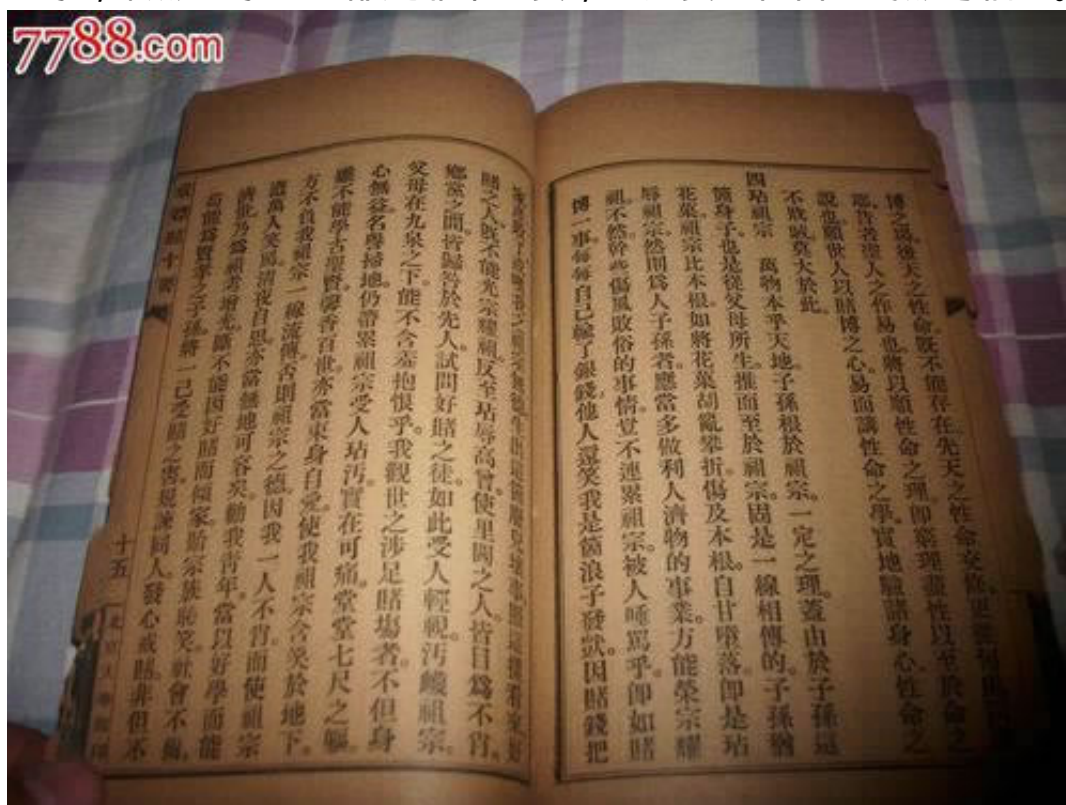 7788.com
博之場後天之性命既不能存在先天之性命
耶昔者聖人之作易也將以順性命之理即窮理盡性以至於命之
說也願世人以賭博之心易而講性命之學實地驗諸身心性命之
不敗賊莫大於此
四玷祖宗 萬物本乎天地子孫根於祖宗一定之理蓋由於子孫這
箇身子也是從父母所生推而至於祖宗固是一線相傳的子孫猶
花菓祖宗比本根如將花菓胡亂攀折傷及本根自甘墮落即是玷
辱祖宗然則為人子孫者應當多做利人濟物的事業方能榮宗耀
祖不然幹些傷風敗俗的事情豈不連累祖宗被人唾罵乎即如賭
博一事每每自己輸了銀錢他人還笑我是箇浪子發獃因賭錢把
賭之人既不能光宗耀祖反至玷辱高曾使里閭之人皆目為不肖
鄉黨之間皆歸咎於先人試問好賭之徒如此受人輕視汚衊祖宗
父母在九泉之下能不含羞抱恨乎我觀世之涉足賭場者不但身
心無益名譽掃地仍帶累祖宗受人玷汚實在可痛堂堂七尺之軀
雖不能學古聖賢馨香百世亦當束身自愛使我祖宗含笑於地下
方不負我祖宗一線流傳否則祖宗之德因我一人不肖而使祖宗
遭萬人笑罵清夜自思亦當無地可容矣勸我青年當以好學而能
濟世乃為祖考增光斷不能因好賭而傾家貽宗族恥笑社會不齒
苟能為賢孝之子孫將一己受賭之害現諫同人發心戒賭非但不
戒賭十
十五